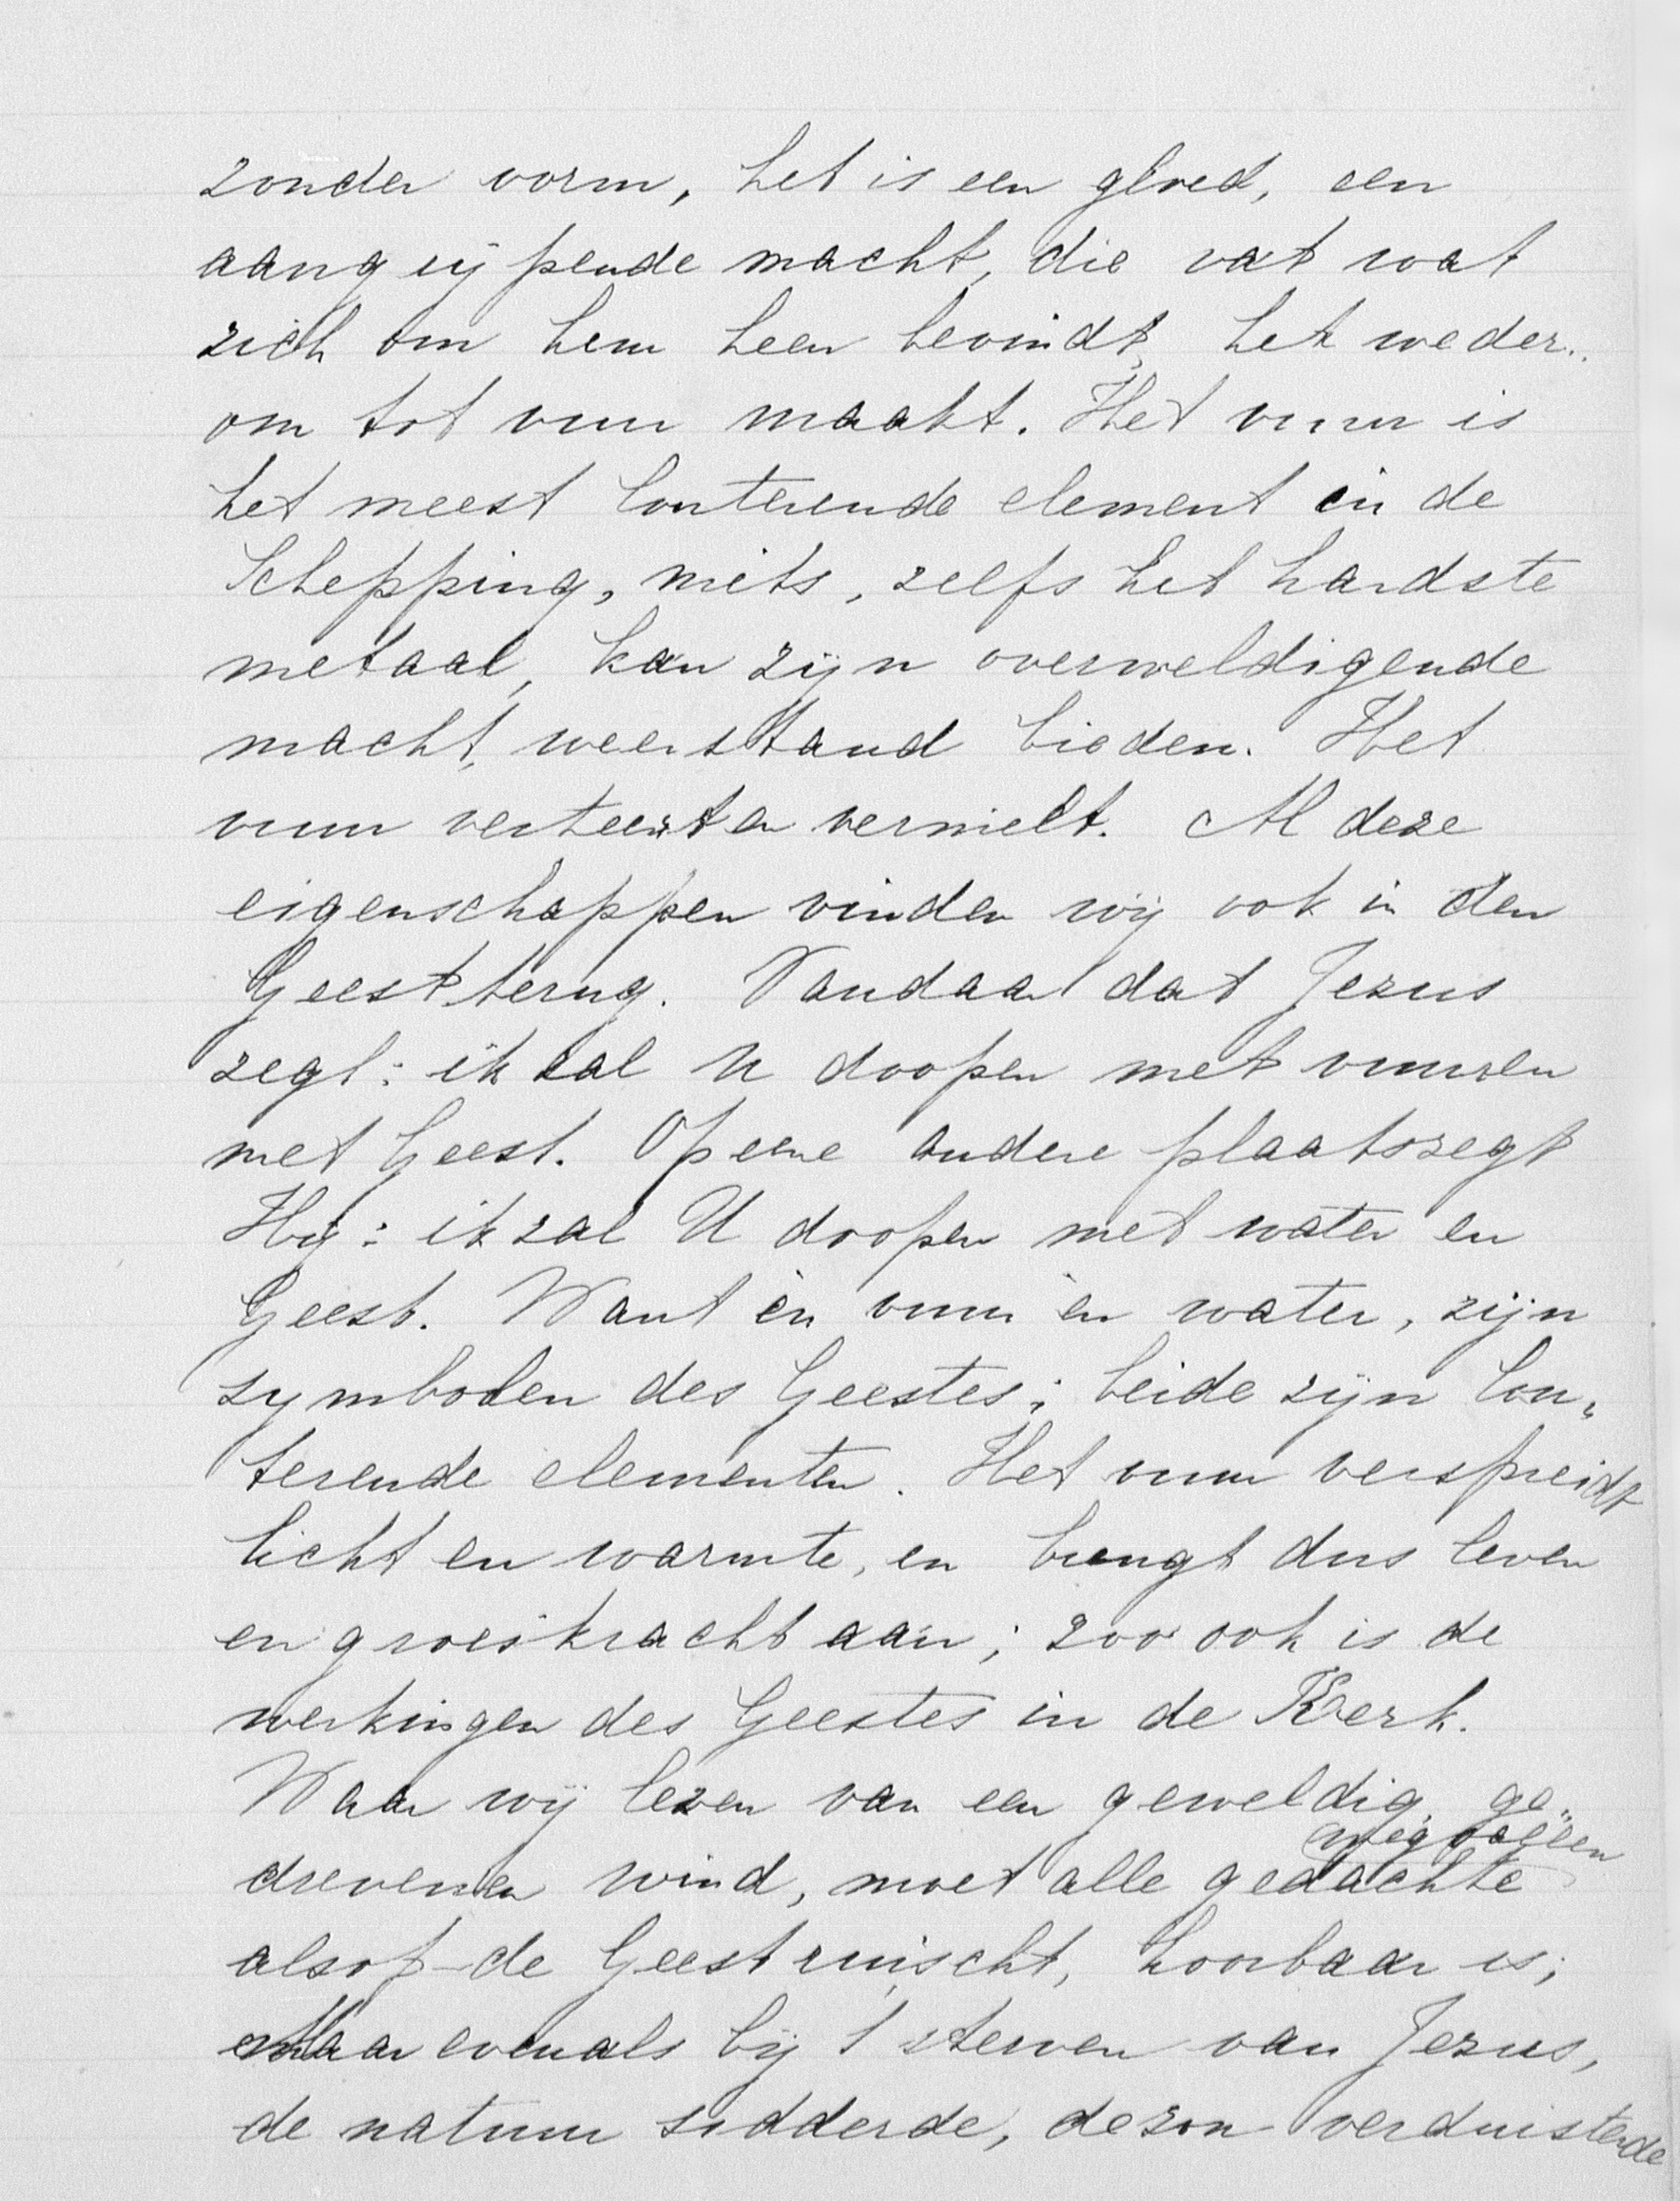 zonder vorm, het is een gloed, een
aangrijpende macht, die vat wat
zich om hem heen bevindt, het weder„
om tot vuur maakt. Het vuur is
het meest louterende element in de
Schepping, niets, zelfs het hardste
metaal, kan zijn overweldigende
macht, weerstand bieden. Het
vuur verteert en vernielt. Al deze
eigenschappen vinden wij ook in den
Geest terug. Vandaar dat Jezus
zegt: ik zal U doopen met vuur en
met Geest. Op eene andere plaats zegt
Hij: ik zal U doopen met water en
Geest. Want èn vuur èn water, zijn
symbolen des Geestes; beide zijn lou„
terende elementen. Het vuur verspreidt
licht en warmte, en brengt dus leven
en groeikracht aan; zoo ook is de
werkingen des Geestes in de Kerk.
Waar wij lezen van een geweldig ge„
wegvallen
drevenen wind, moet alle gedachte
alsof de Geest ruischt, hoorbaar is;
Maar evenals bij 't sterven van Jezus,
de natuur sidderde, de zon verduisterde